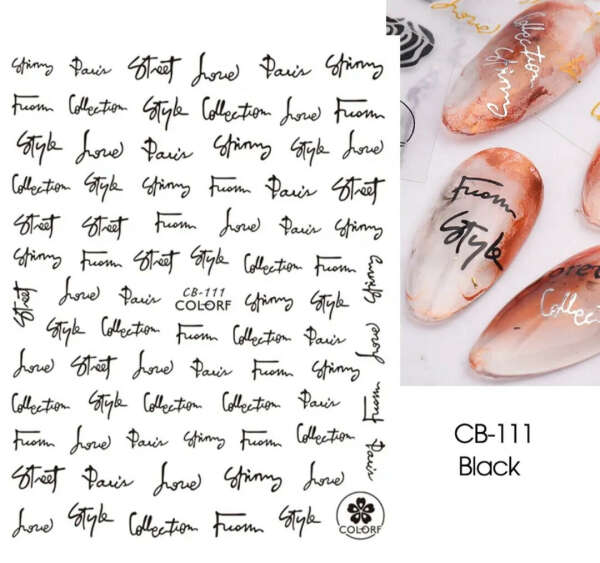 Spinny Paris Street Love Paris Spinny
From Collection Style Collection Love From
Style Love Paris Spinny Style Love
Collection Style Spinny From Paris Street
Street Street From Love Paris Spinny
Spinny From Street Style Collection From
Spinny
Street Love Paris CB-111 Spinny Style
COLORF
Style Collection From Collection Paris
Love
Love Street Love Paris From Spinny
Collection Style Collection Collection Paris
From
From Love Paris Spinny From Collection
Paris
Street Paris Love Spinny Love
Love Style Collection From Style
COLORF
Love
Collection
Spinny
From
Style
Collec
CB-111
Black